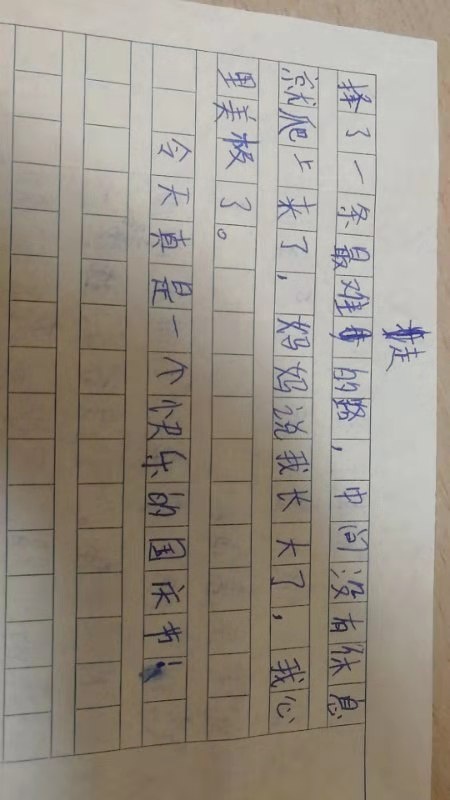 走
择了一条最难的路,中间没有休息
就爬上来了,妈妈说我长大了,我心
里美极了。
今天真是一个快乐的国庆节!